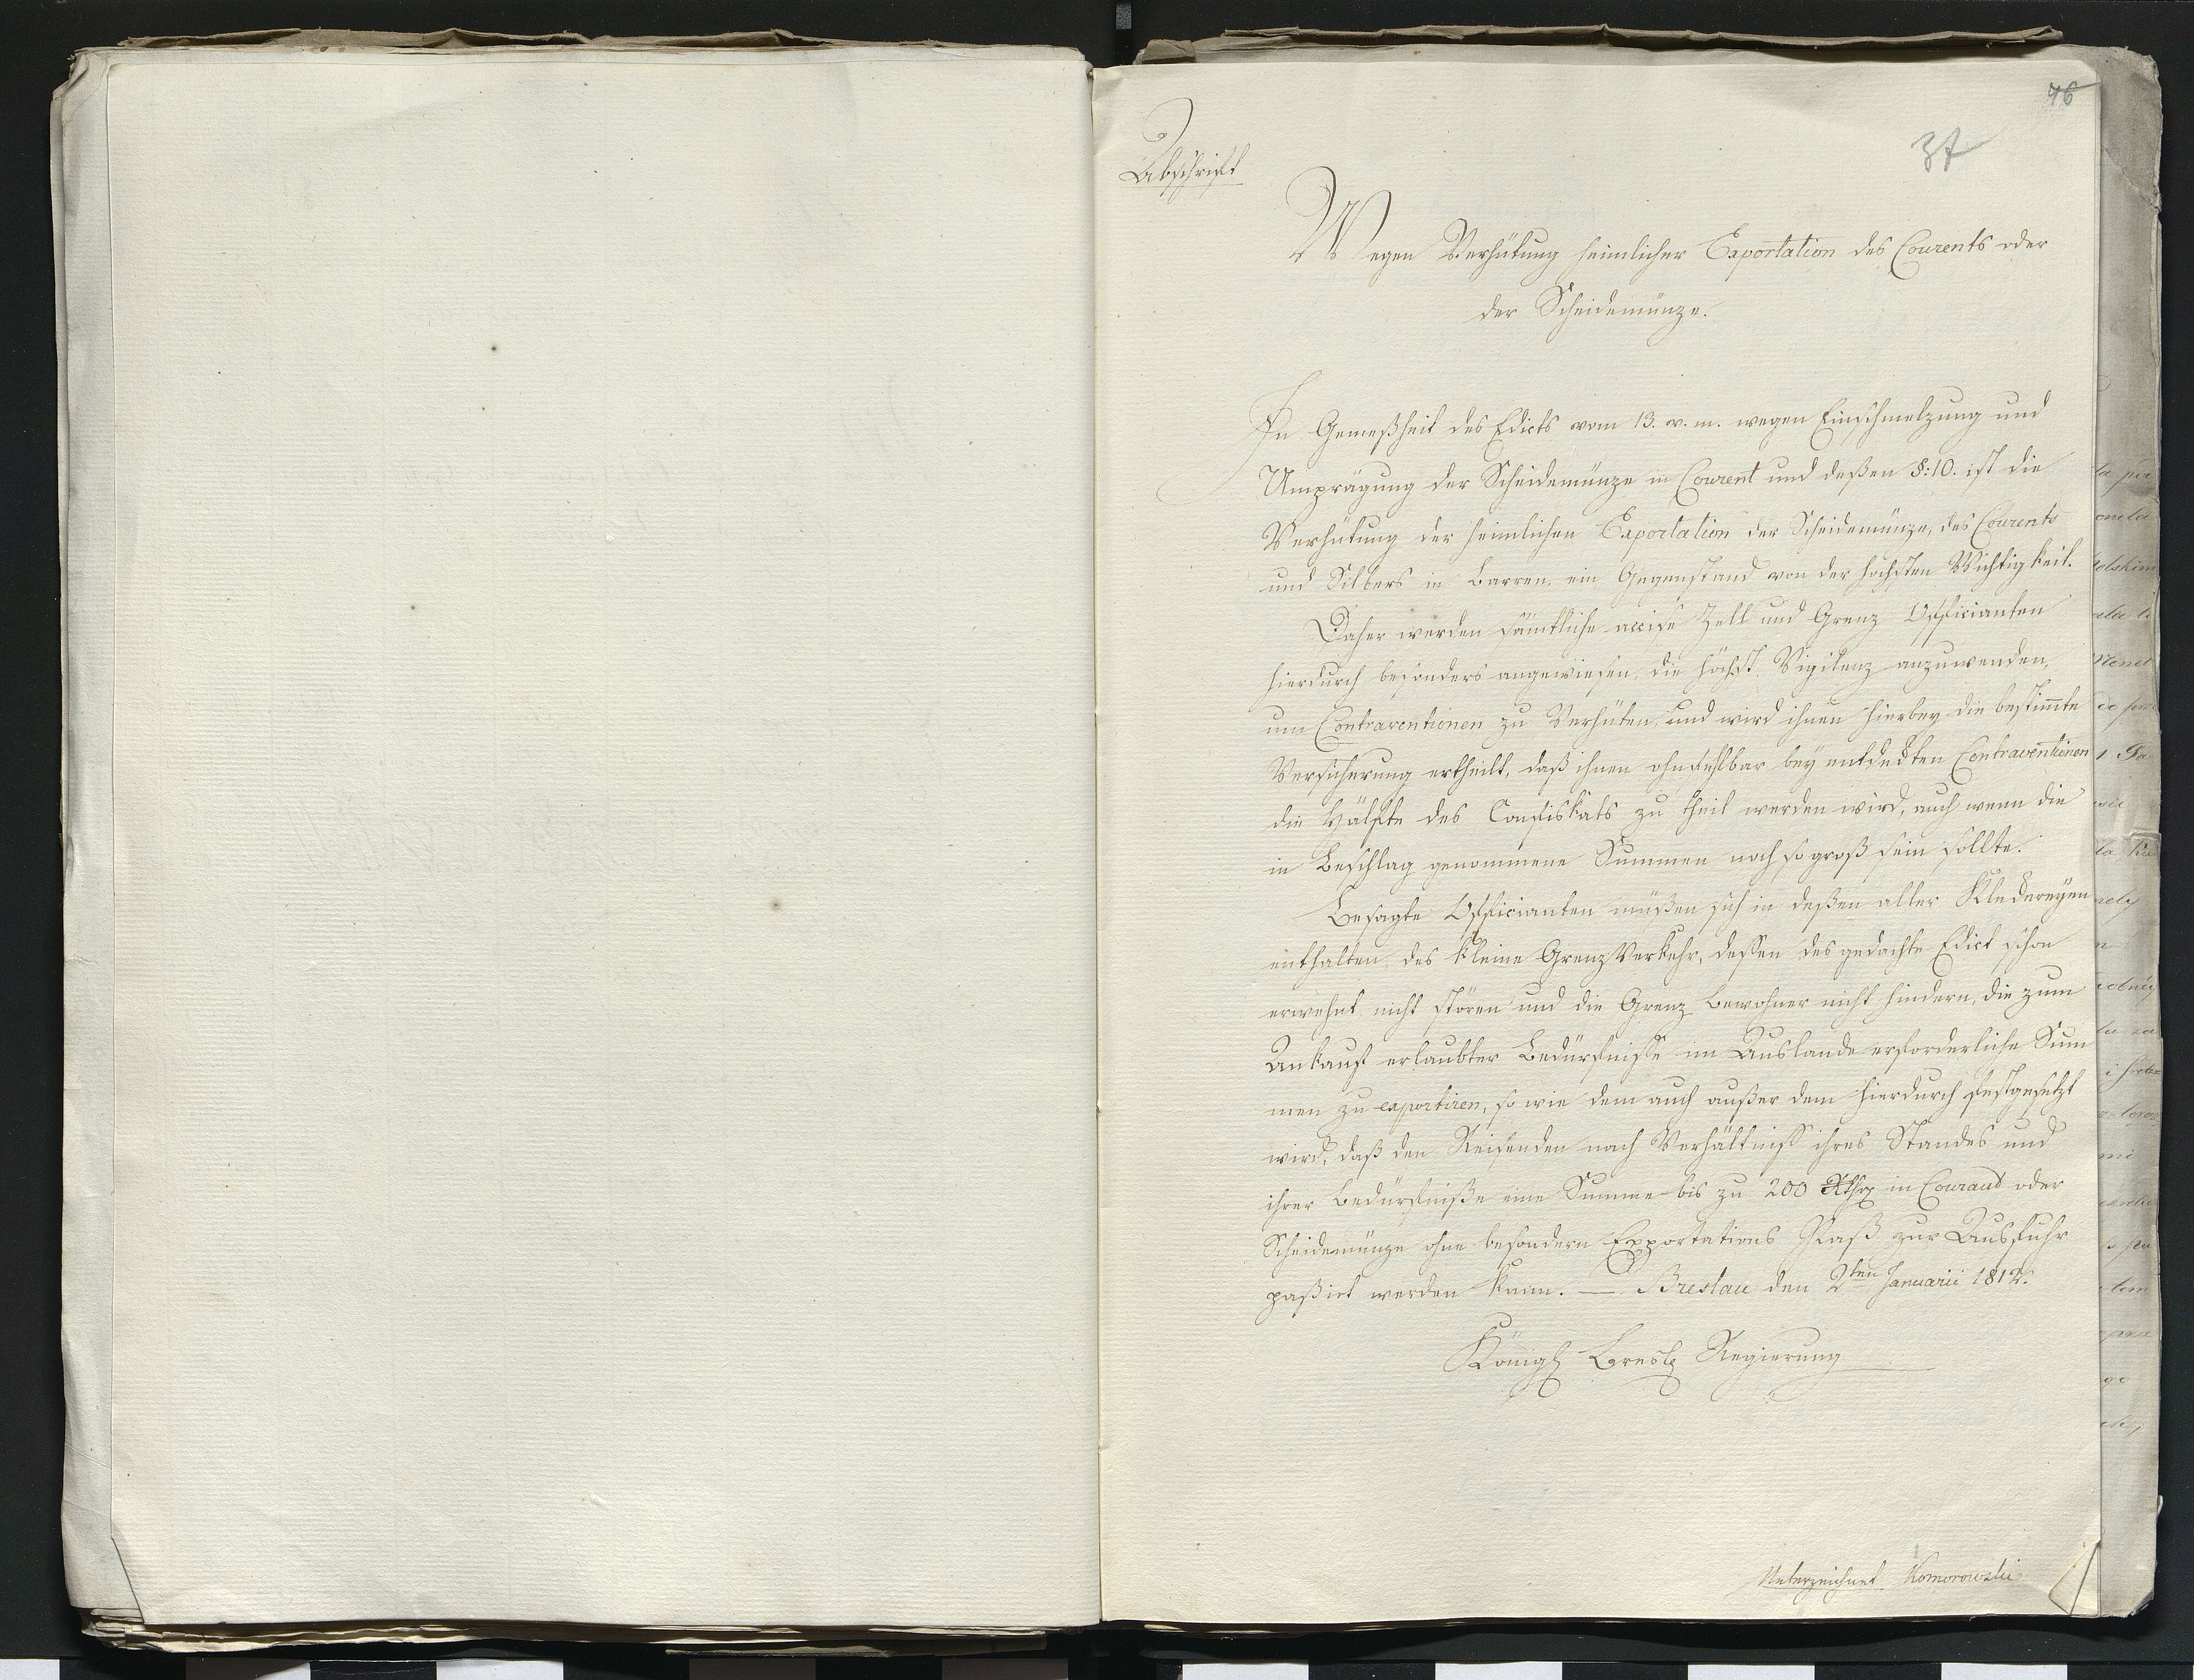 46
37
Abschrift
Wegen Verhütung heimlicher Exportation des Courents oder
der Scheidemünze.
In Gemeßheit des Edicts vom 13. v. m. wegen Einschmelzung und
Umprägung der Scheidemünze in Courent und deßen §: 10. ist die
Verhütung der heimlichen Exportation der Scheidemünze, des Courents
und Silbers in Barren, ein Gegenstand von der höchsten Wichtigkeit.
Daher werden sämtliche accise Zoll und Grenz Officianten
hierdurch besonders angewiesen, die höchst Vigilenz anzuwenden,
um Contraventionen zu Verhüten, und wird ihnen hierbey die bestim̄te
Versicherung ertheilt, daß ihnen ohnfehlbar bey entdeckten Contraventionen
die Hälfte des Confiskats zu theil werden wird, auch wenn die
in Beschlag genommene Summen noch so groß sein sollte.
Besagte Officianten müßen sich in deßen aller
enthalten, des kleine Grenz Verkehr, dessen des gedachte Edict schon
erwehnt nicht stören und die Grenz Bewohner nicht hindern, die zum
Ankauf erlaubter Bedürfnisse im Auslande erforderliche Sum
men zu exportiren, so wie dem auch außer dem hierdurch festgesetzt
wird, daß den Reisenden nach Verhältniß ihres Standes und
ihrer Bedürfniße eine Summe bis zu 200 Rthlr in Courant oder
Scheidemünze ohne besondern Exportations Paß zur Ausfuhr
paßirt werden kann. — Breslau den 2ten Januarii 1812.
Königl Bresl Regierung
Unterzeichnet Komorowski